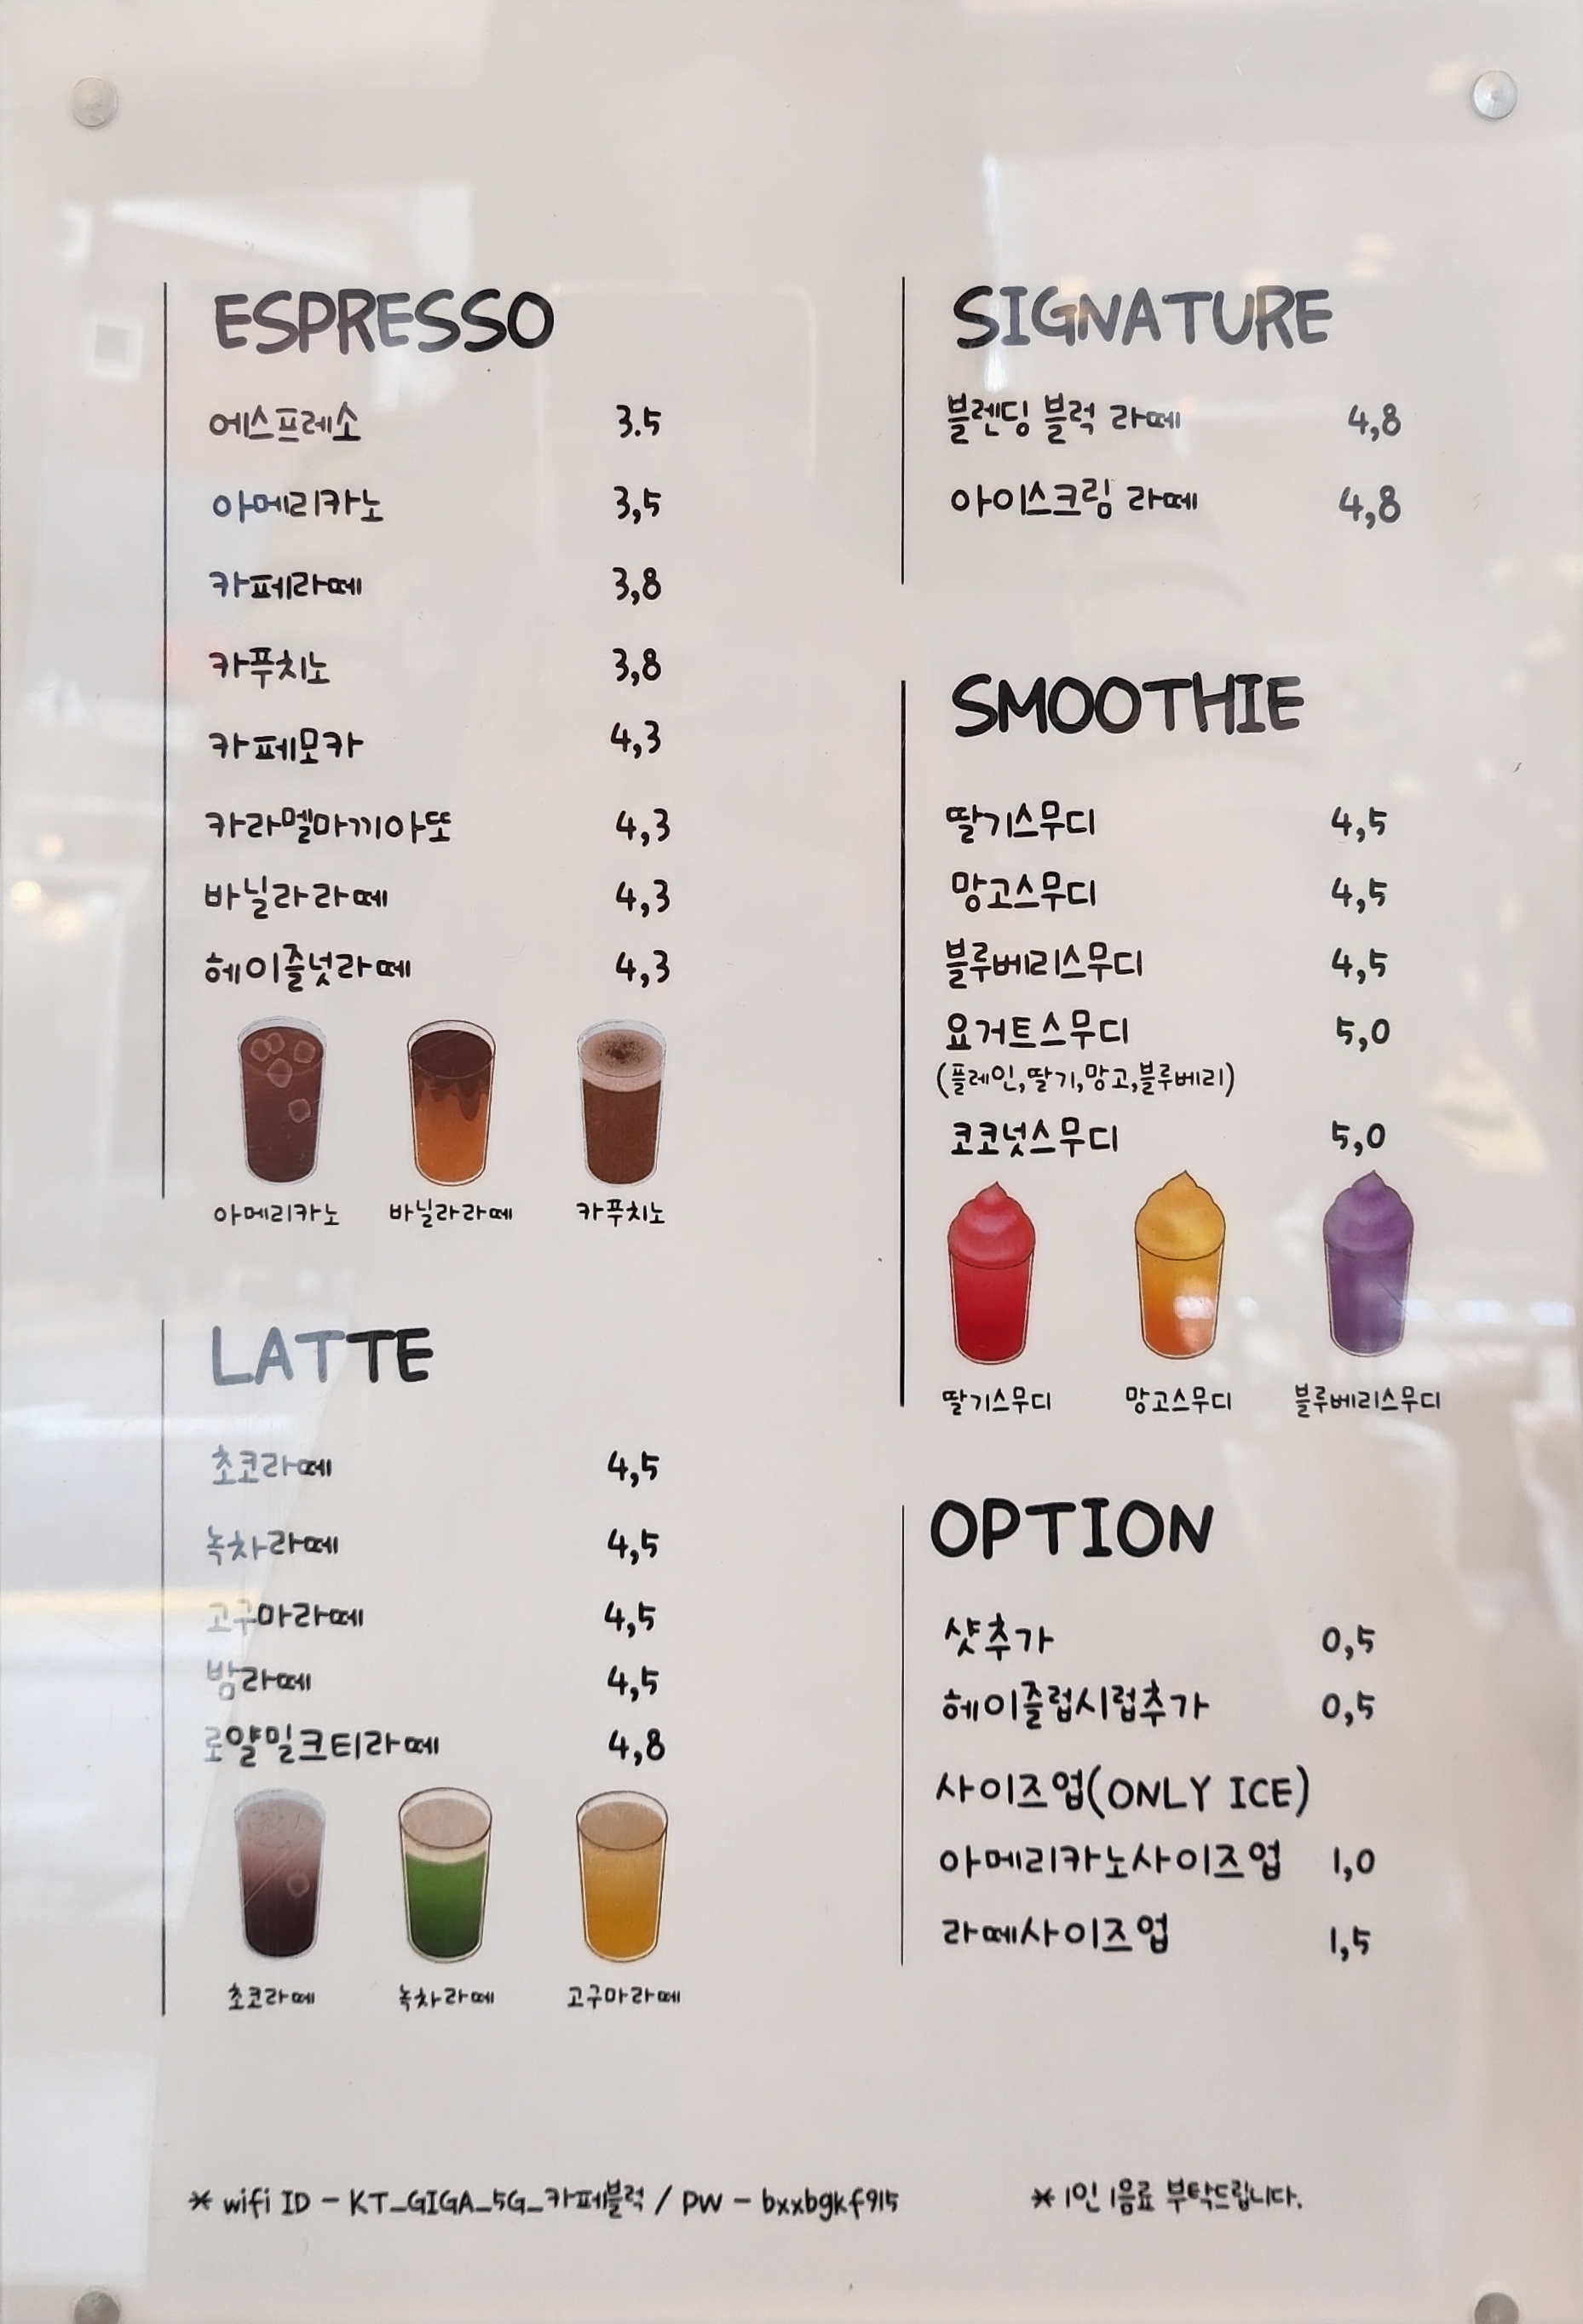 ESPRESSO
에스프레소 3.5
아메리카노 3,5
카페라떼 3,8
카푸치노 3,8
카페모카 4,3
카라멜마끼아또 4,3
바닐라라떼 4,3
헤이즐넛라떼 4,3
아메리카노 바닐라라떼 카푸치노
LATTE
초코라떼 4,5
녹차라떼 4,5
고구마라떼 4,5
밤라떼 4,5
로얄밀크티라떼 4,8
초코라떼 녹차라떼 고구마라떼
SIGNATURE
블렌딩 블럭 라떼 4,8
아이스크림 라떼 4,8
SMOOTHIE
딸기스무디 4,5
망고스무디 4,5
블루베리스무디 4,5
요거트스무디 5,0
(플레인,딸기,망고,블루베리)
코코넛스무디 5,0
딸기스무디 망고스무디 블루베리스무디
OPTION
샷추가 0,5
헤이즐럽시럽추가 0,5
사이즈업(ONLY ICE)
아메리카노사이즈업 1,0
라떼사이즈업 1,5
* wifi ID - KT_GIGA_5G_카페블럭 / PW - bxxbgkf915
* 1인 1음료 부탁드립니다.